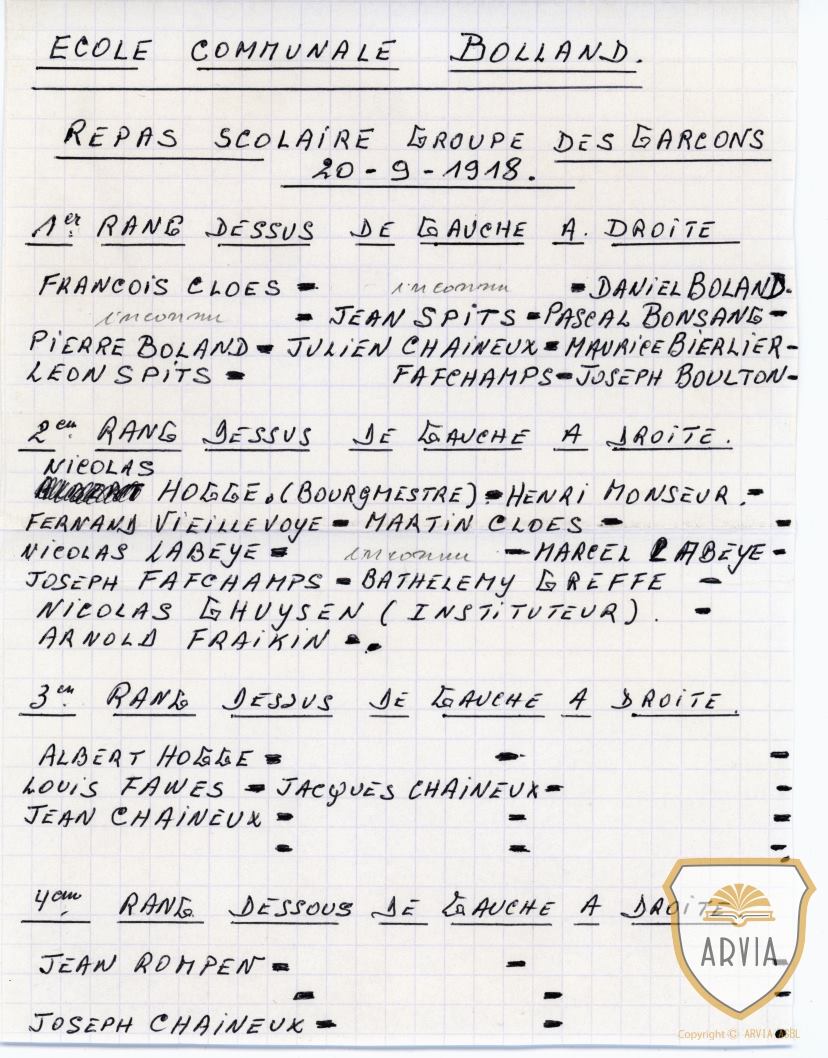 ECOLE COMMUNALE BOLLAND.
REPAS SCOLAIRE GROUPE DES GARCONS
20 - 9 - 1918.
1er RANG DESSUS DE GAUCHE A. DROITE
FRANCOIS CLOES - inconnu - DANIEL BOLAND-
inconnu - JEAN SPITS - PASCAL BONSANG -
PIERRE BOLAND - JULIEN CHAINEUX - MAURICE BIERLIER -
LEON SPITS - FAFCHAMPS - JOSEPH BOULTON -
2em RANG DESSUS DE GAUCHE A DROITE.
NICOLAS
HOGGE. (BOURGMESTRE) - HENRI MONSEUR. -
FERNAND VIEILLEVOYE - MARTIN CLOES - -
NICOLAS LABEYE - inconnu - MARCEL LABEYE -
JOSEPH FAFCHAMPS - BATHELEMY GREFFE -
NICOLAS GHUYSEN (INSTITUTEUR). -
ARNOLD FRAIKIN -.
3em RANG DESSUS DE GAUCHE A DROITE.
ALBERT HOGGE - - -
LOUIS FAWES - JACQUES CHAINEUX - -
JEAN CHAINEUX - - -
- - -
4em RANG DESSOUS DE GAUCHE A DROITE
JEAN ROMPEN - - -
- - -
JOSEPH CHAINEUX - - -
ARVIA
Copyright © ARVIA ASBL